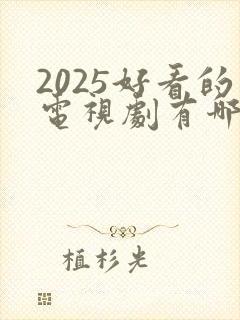 2025好看的
電視劇有哪
植杉光